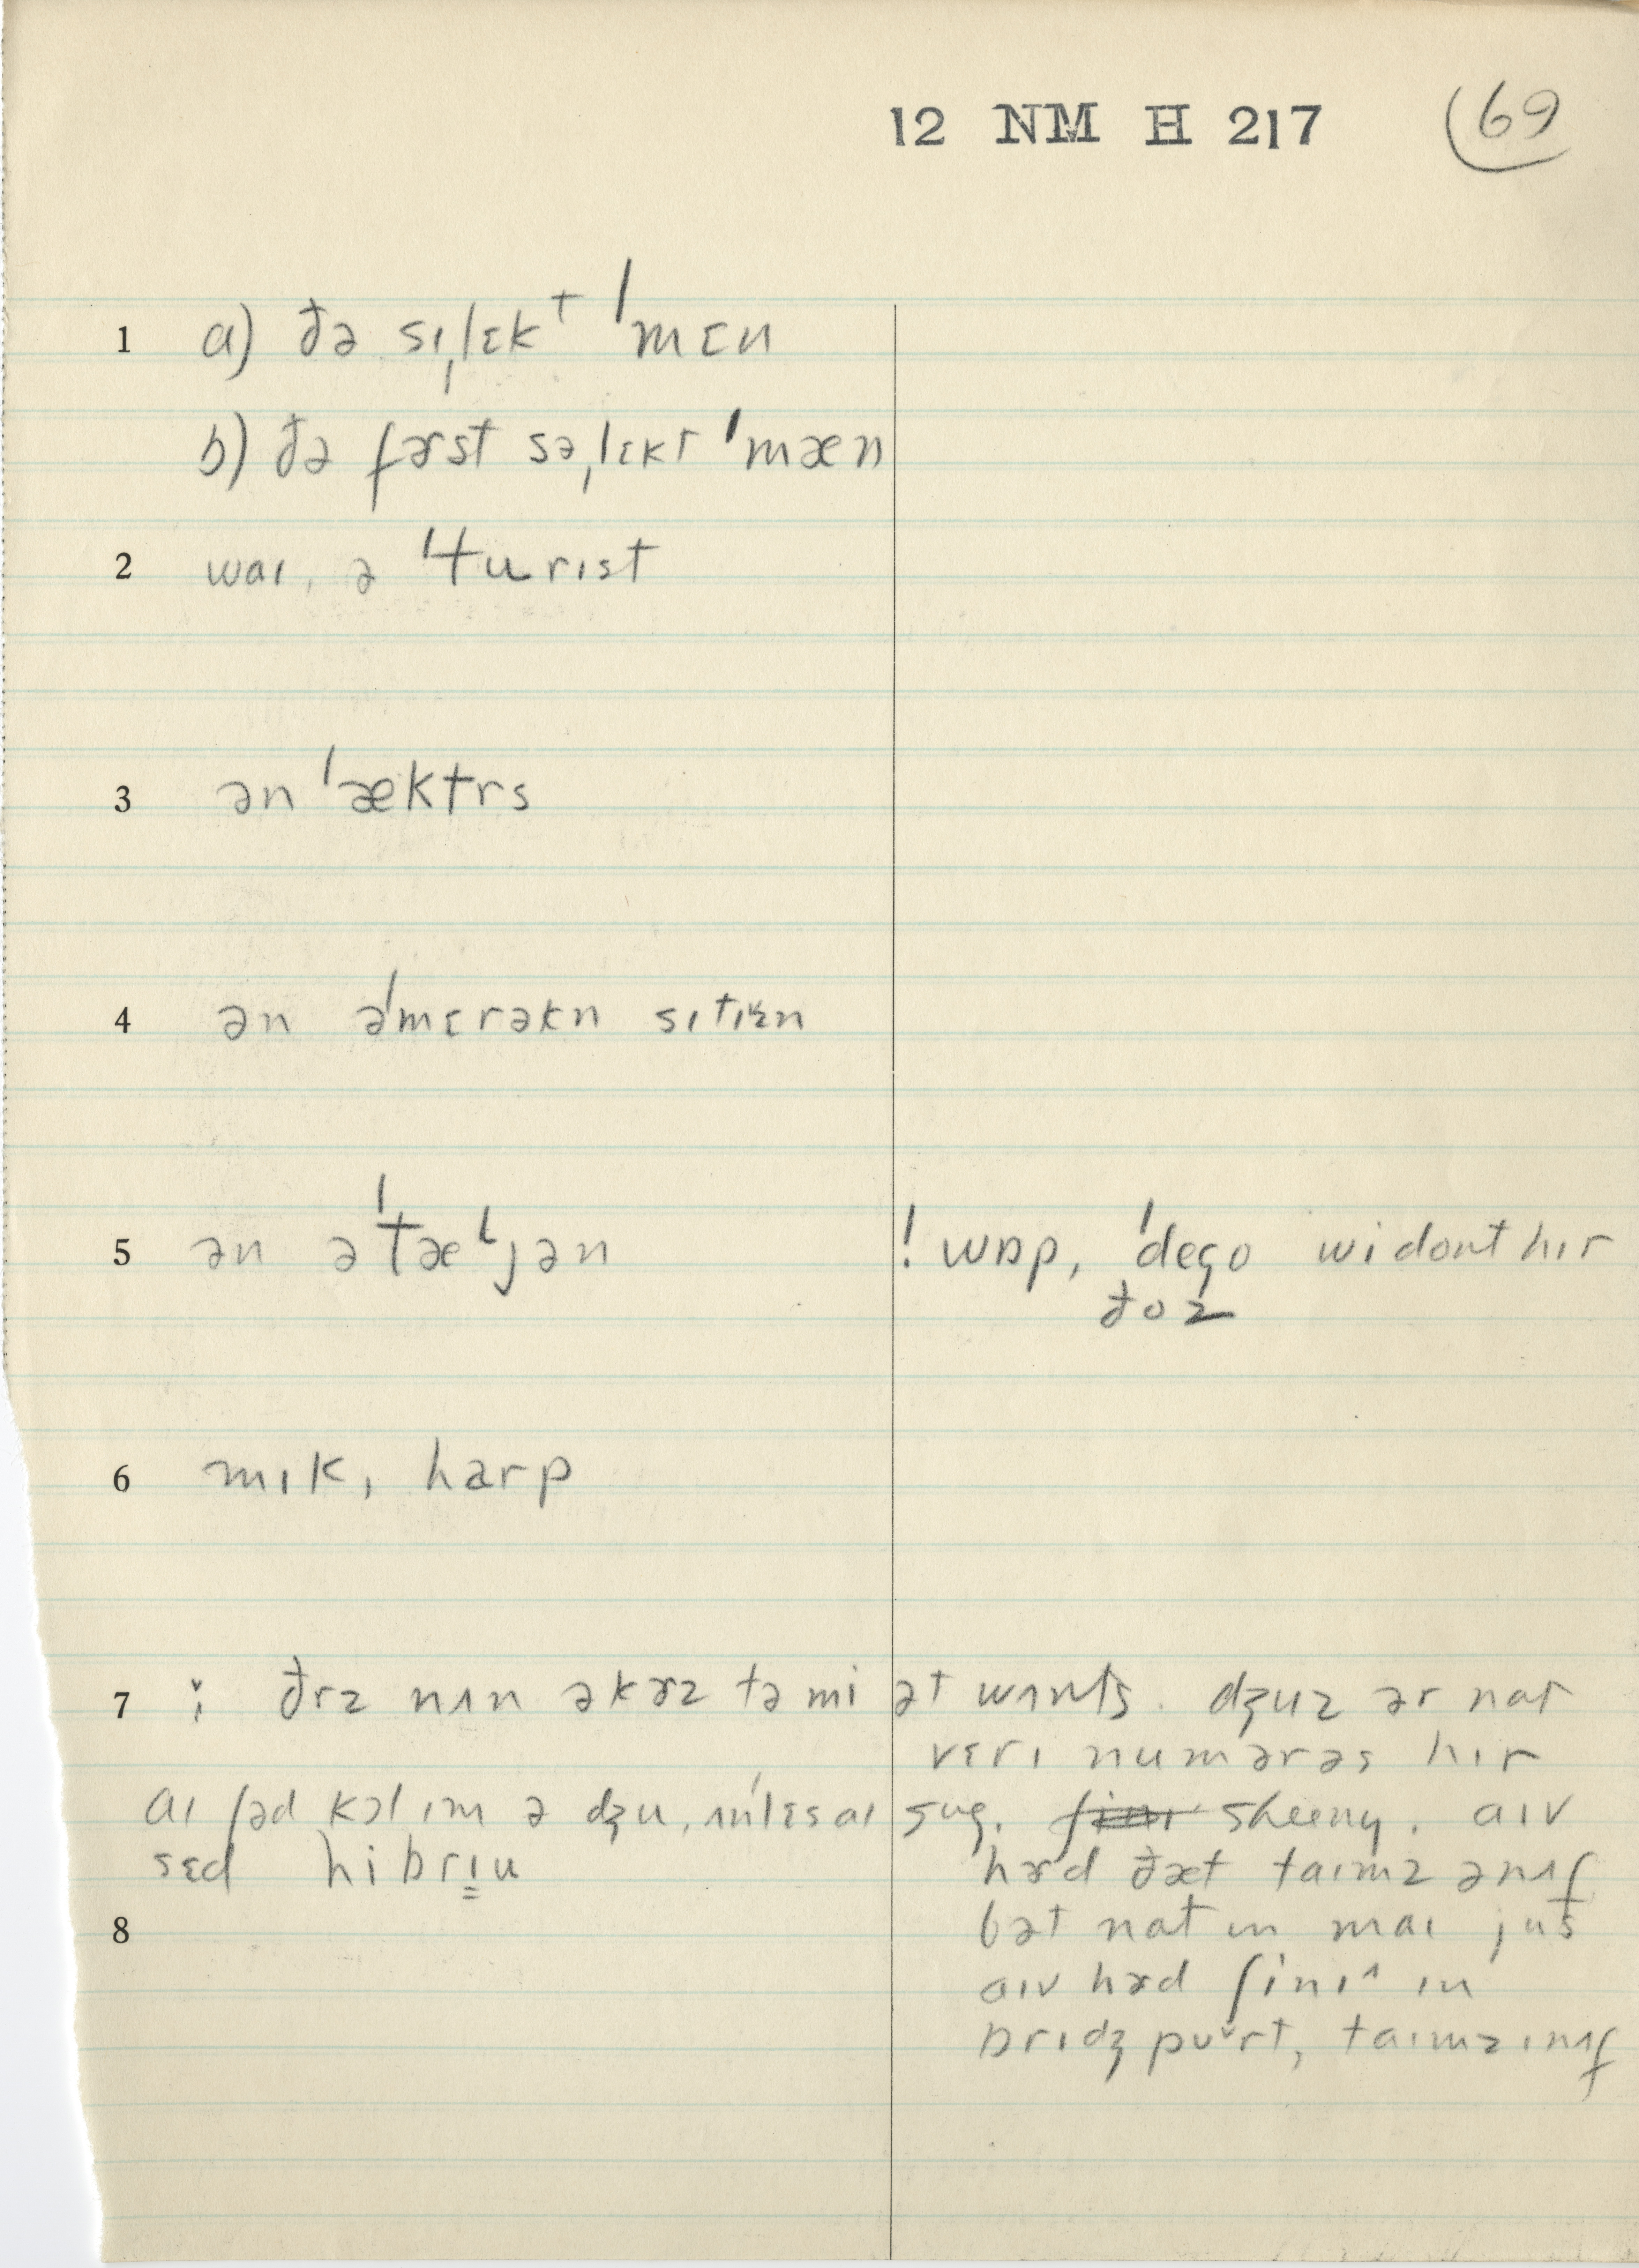 12 NM H 217 69
1 a) ðə sɪˌlɛkᵗ ˈmɛn
b) ðə fɚst səˌlɛkt ˈmæn
2 waɪ, ə ˈturɪst
3 ən ˈæktrs
4 ən əˈmɛrəkn sɪtɪzn
5 ən əˈtæˡjən ! wɒp, ˈdego wi dont hɪr
ðoz
6 mɪk, harp
7 ðrz nʌn əkɚz tə mi ət wʌnts. dʒuz ər nat
vɛrɪ numərəs hɪr
aɪ ʃəd kɔl ɪm ə dʒu, ʌnlɛs aɪ sheeny. aɪv
sɛd hibrɪu hɚd ðæt taɪmz ənʌf
8 bət nat ɪn maɪ jus
aɪv hɚd ʃinɪ^ ɪn
brɪdʒpʊrt, taɪmz ɪnʌf